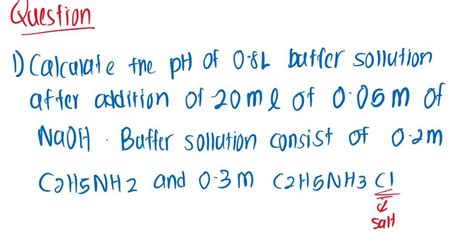 Question
1) Calculate the pH of 0.8L buffer sollution
after addition of 20ml of 0.05M of
NaOH. Buffer sollution consist of 0.2M
C2H5NH2 and 0.3M C2H5NH3Cl
salt